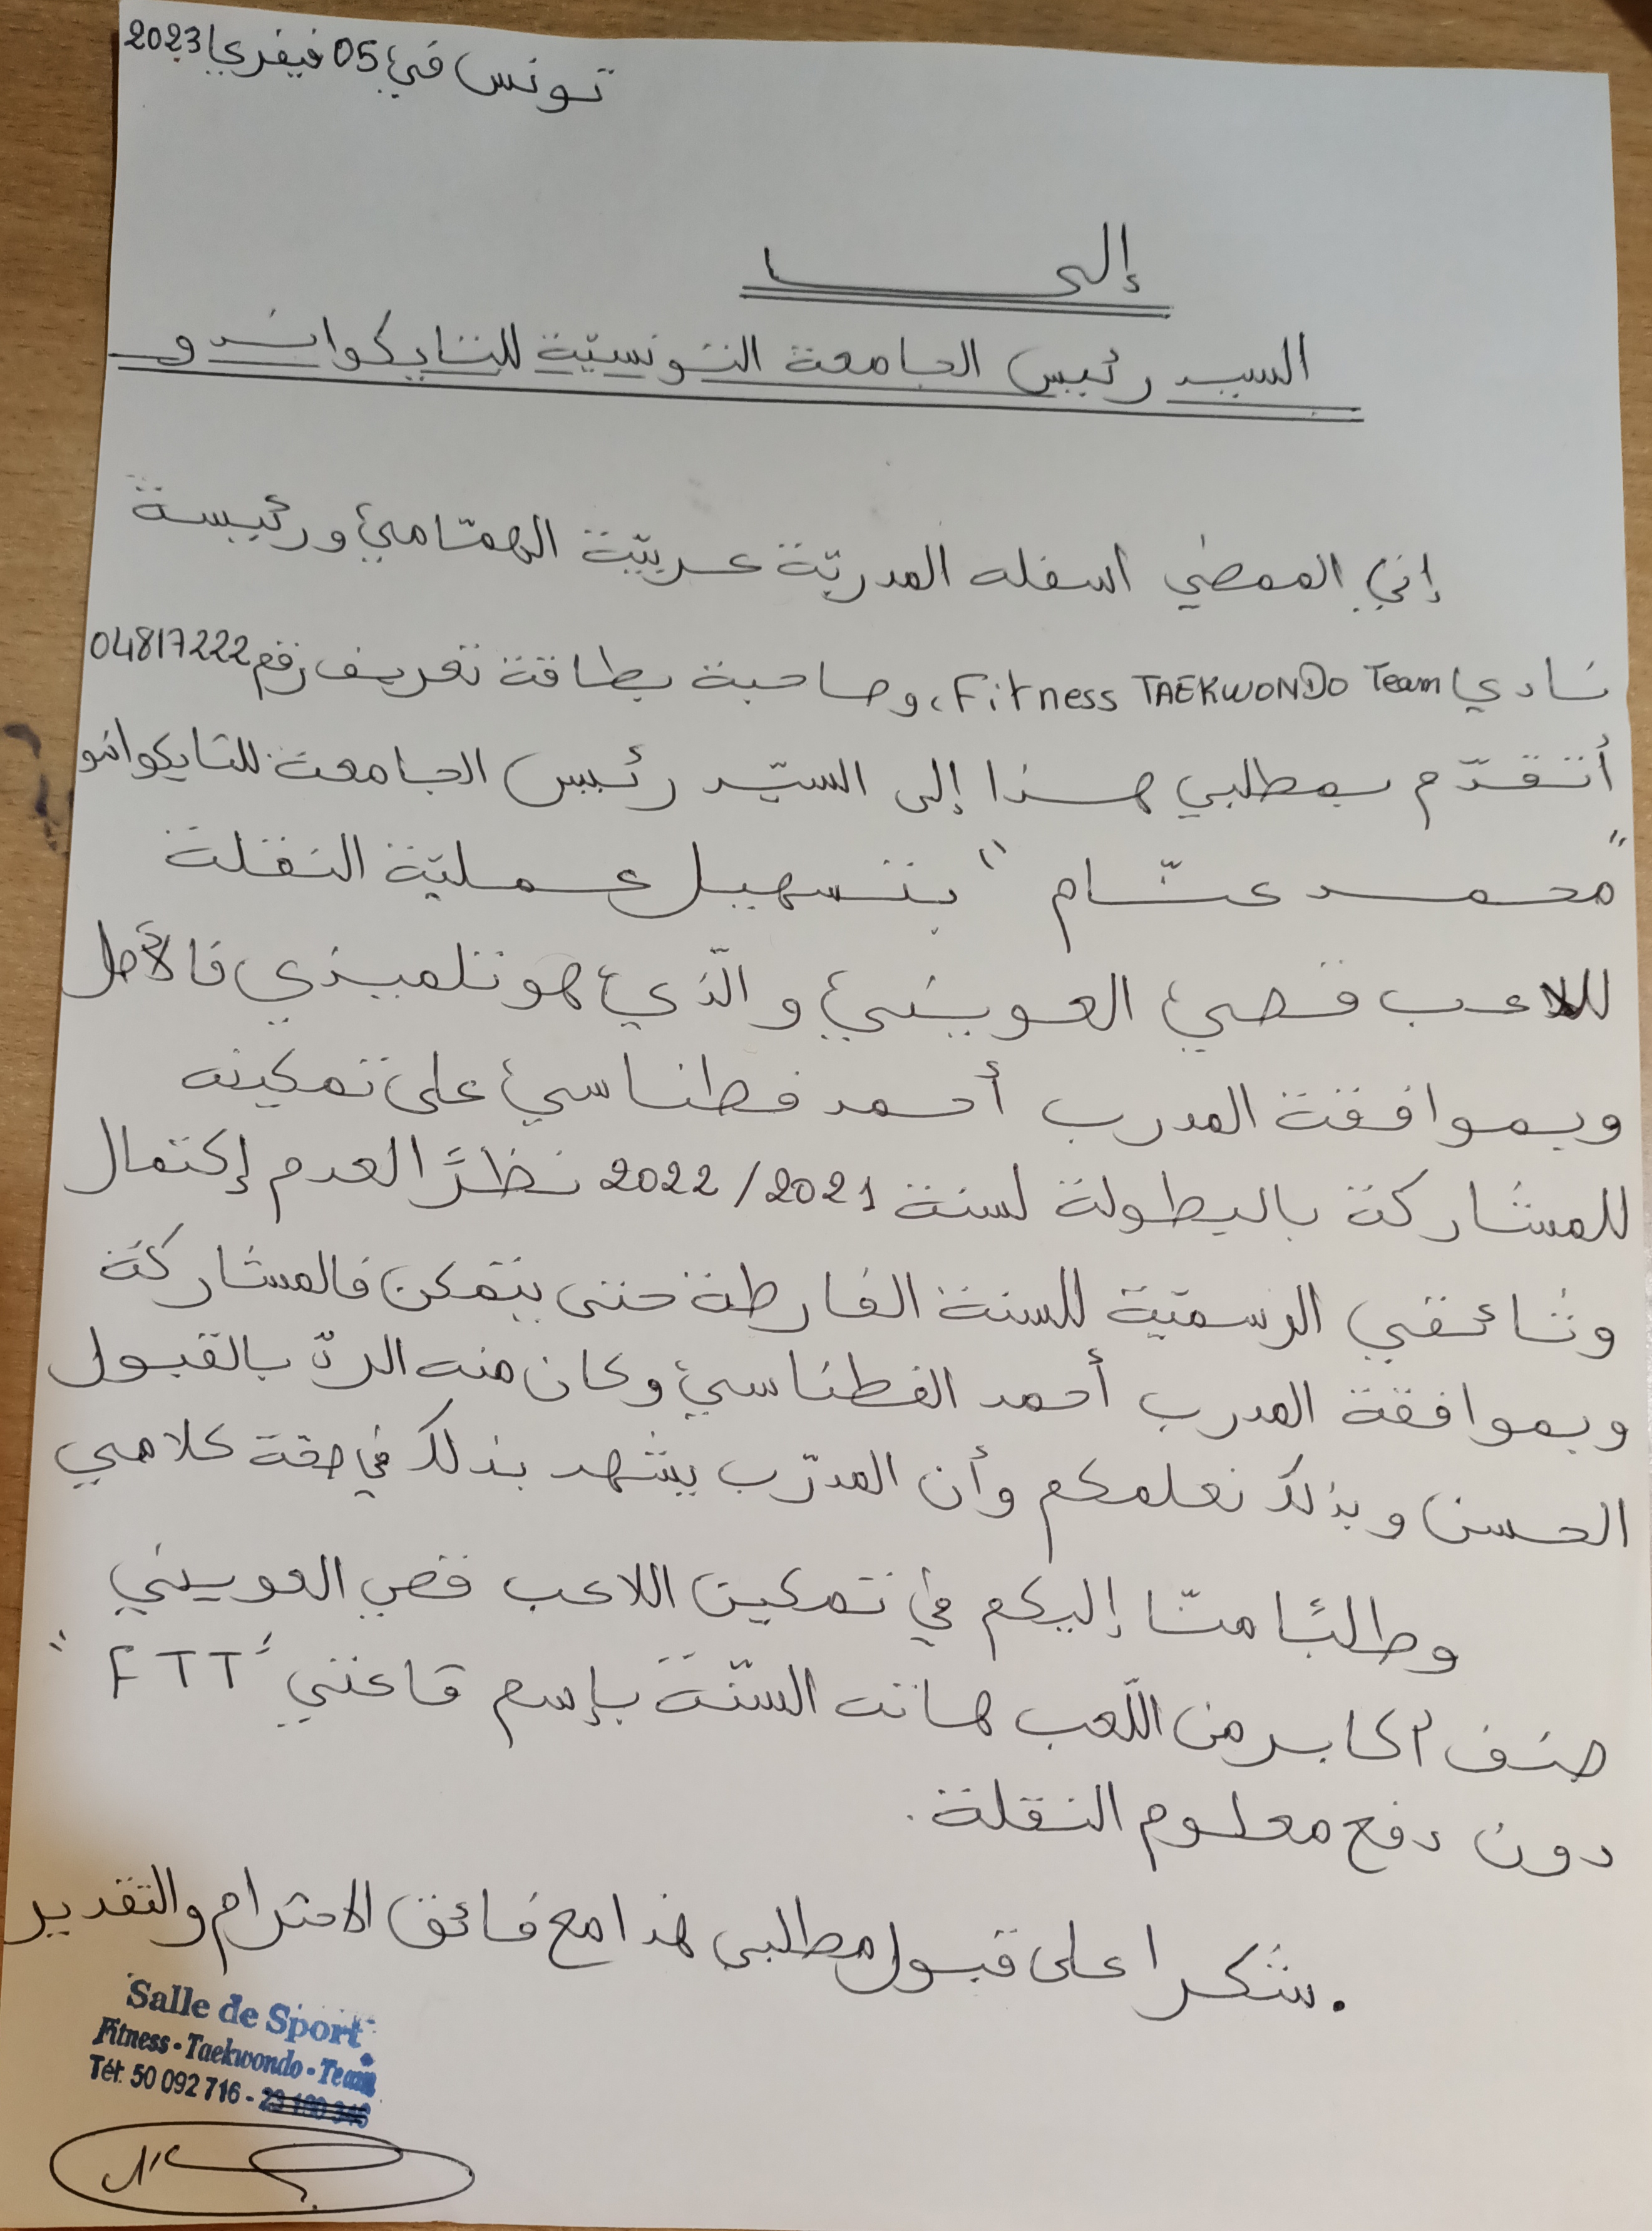 تونس في 05 فيفري 2023
إلى
السيد رئيس الجامعة التونسيّة للتايكواندو
إني الممضي اسفله المدربّة عربيّة الهمّامي ورئيسة
نادي Fitness TAEKWONDO Team، وصاحبة بطاقة تعريف رقم 04817222
أتقدّم بمطلبي هذا إلى السيّد رئيس الجامعة للتايكواندو
"محمد عشّام" بتسهيل عمليّة النقلة
للاعب قصي العويني والّذي هو تلميذي فالأصل
وبموافقة المدرب أحمد فطناسي على تمكينه
للمشاركة بالبطولة لسنة 2021/2022 نظرًا لعدم إكتمال
وثائقي الرسميّة للسنة الفارطة حتى يتمكن فالمشاركة
وبموافقة المدرب أحمد الفطناسي وكان منه الردّ بالقبول
الحسن وبذلك نعلمكم وأن المدرّب يشهد بذلك في صحة كلامي
وطلبًا منّا إليكم في تمكين اللاعب قصي العويني
صنف أكابر من اللّعب هاته السّنة بإسم قاعتي "FTT"
دون دفع معلوم النقلة.
. شكرا على قبول مطلبي هذا مع فائق الاحترام والتقدير
Salle de Sport
Fitness - Taekwondo - Team
Tél: 50 092 716 -